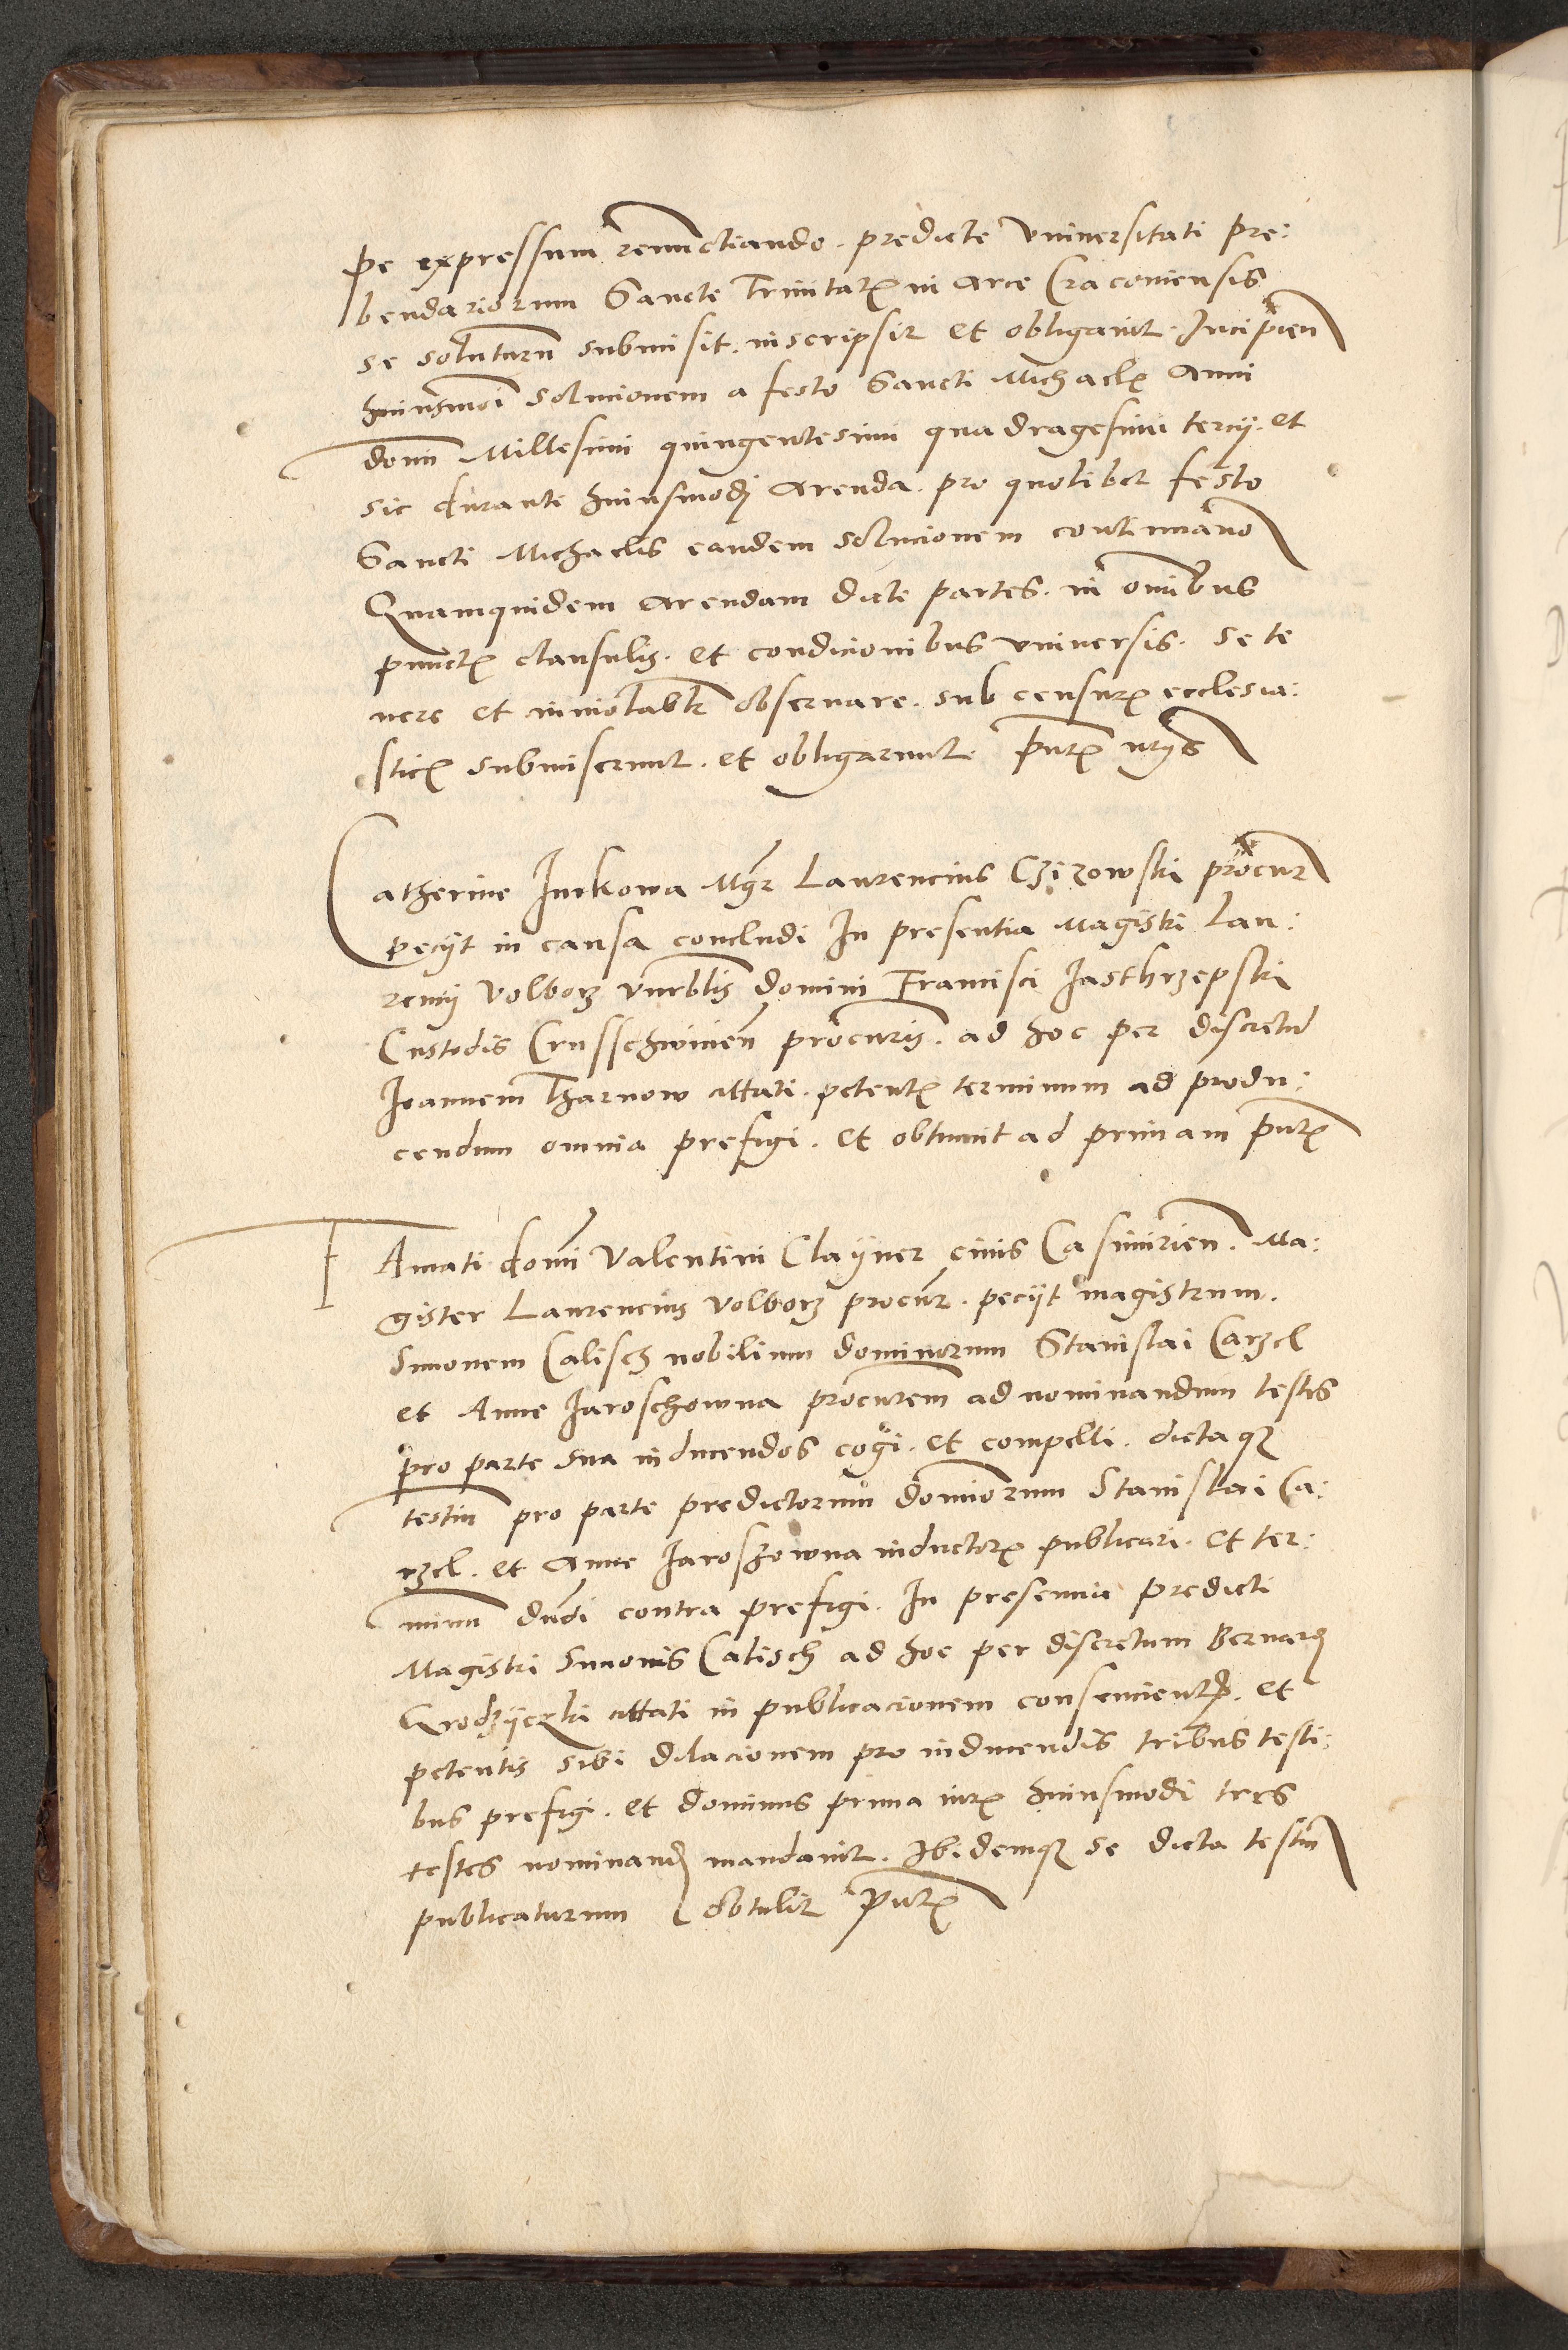 pe expressum renunctiando. predicte vniuersitati pre:
bendariorum Sancte Trinitatꝭ in Arce Cracouiensis
se soluturū submisit. inscripsit et obligauit. Incipien
huiusmoi solucionem a festo Sancti Michaelꝭ Anni
domī Millesimi quingentesimi quadragesimi tercij. et
sic durante huiusmodj Arenda. pro quolibet festo
Sancti Michaelis eandem solucionem continuano
Quamquidem Arendam dicte partes. in omibus
punctꝭ clausulis. et condicionibus vniuersis. se te
nere et inuiolablr obseruare. sub censurꝭ ecclesia:
sticꝭ submiserunt. et obligarunt pntꝭ
Catherine Jurkowa Mgr Laurencius Czizowski procur
pecijt in causa concludi In presentia Magistri Lau:
rencij Volborz vnrblis domini Francisci Jasthrzepski
Custodis Crusschwicien procuris. ad hoc per discretū
Joannem Tharnow cittati. petentꝭ terminum ad produ:
cendum omnia prefigi. et obtinuit ad primam pntꝭ
Famati domī Valentini Claÿner ciuis Casimirien. Ma:
gister Laurencius Volborz procur. pecijt magistrum.
Simonem Calisch nobilium dominorum Stanislai Carzel
et Anne Jaroschowna procurem ad nominandum testes
pro parte sua inducendos cogi. et compelli. dictaqꝫ
testiū pro parte predictorum domiorum Stanislai Ca:
rzel. et Anne Jaroszowna inductorꝭ publicari. et ter:
minū dndi contra prefigi. In presencia predicti
Magistri Simonis Calisch ad hoc per discretum Bernardj
Grodzÿczki cittati in publicacionem consencientꝭ. et
petentis sibi dilacionem pro inducendis tribus testi:
bus prefigi. et dominus prima iurꝭ huiusmodi tres
testes nominandj mandauit. Ibidemqꝫ se dicta testiū
publicaturum obtulit pntꝭ